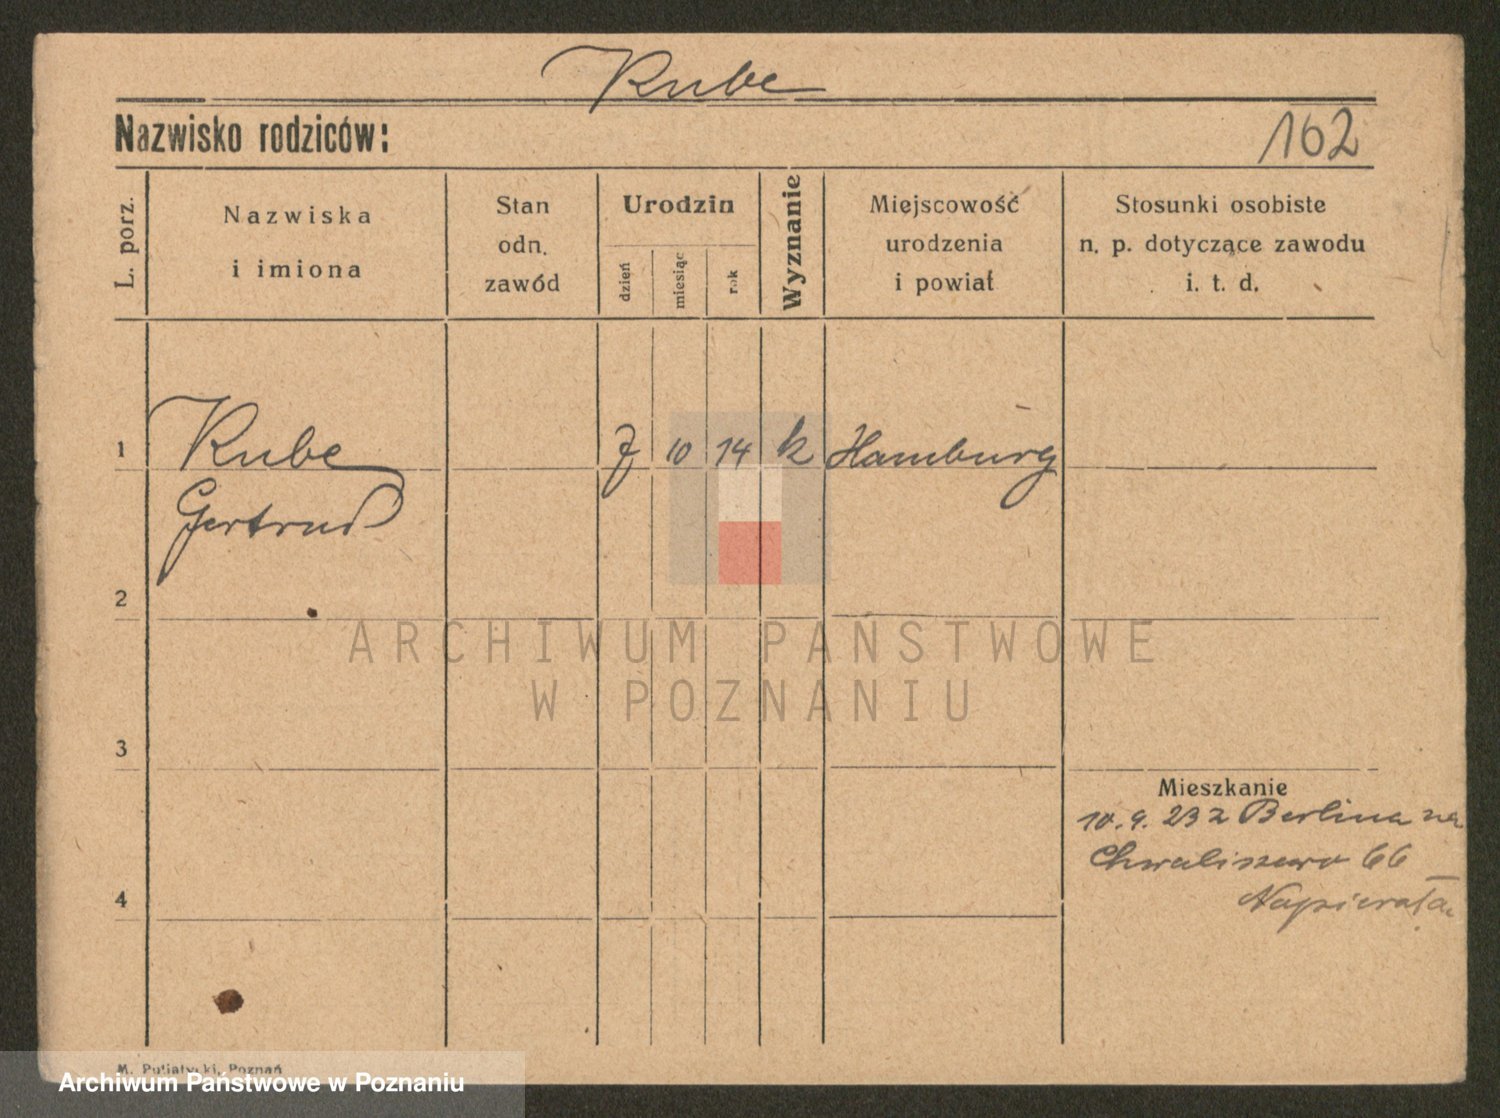 Kube
Nazwisko rodziców:
162
L. porz.
Nazwiska
i imiona
Stan
odn.
zawód
Urodzin
dzień
miesiąc
rok
Wyznanie
Miejscowość
urodzenia
i powiat
Stosunki osobiste
n. p. dotyczące zawodu
i. t. d.
1
Kube
7 10 14 k Hamburg
Gertrud
2
ARCHIWUM PAŃSTWOWE
W POZNANIU
3
Mieszkanie
10.9.23 z Berlina na
Chwaliszewo 66
Napierała
4
M. Putiatycki, Poznań
Archiwum Państwowe w Poznaniu